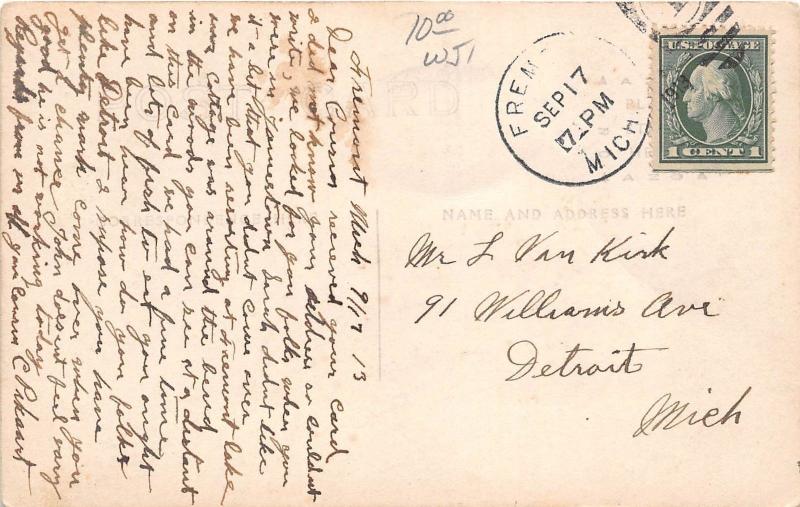 Fremont Mich 9/17 13
Dear Cousin recieved your card
I did not know your address so couldnt
write, we looked for you folks when you
were in Jamestown didnt like
it a bit that you didnt come over
we have been resorting at Fremont lake
our cottage was around the bend
in the woods you can see at a distant
on this card we had a fine time
and lots of fish to eat you ought
have been here how do you folks
like Detroit I supose you have
plenty work come over when you
get a chance John doesent feel very
good he is not working today
Regards from us all your Cousin C
10 00
WJ1
POST CARD
CORRESPONDENCE HERE
NAME AND ADDRESS HERE
FREM
SEP 17
PM
MICH.
1913
U.S. POSTAGE
1 CENT 1
Mr L Van Kirk
91 Williams Ave
Detroit
Mich